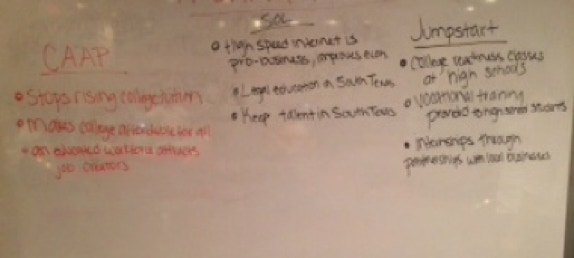 CAAP
• Stops rising college tuition
• makes college affordable for all
• an educated workforce attracts
job creators
SOL
• High speed internet is
pro-business, improves econ.
• Legal education in South Texas
• Keep talent in South Texas
Jumpstart
• College readiness classes
at high schools
• Vocational training
provided to high school students
• Internships through
partnerships with local businesses